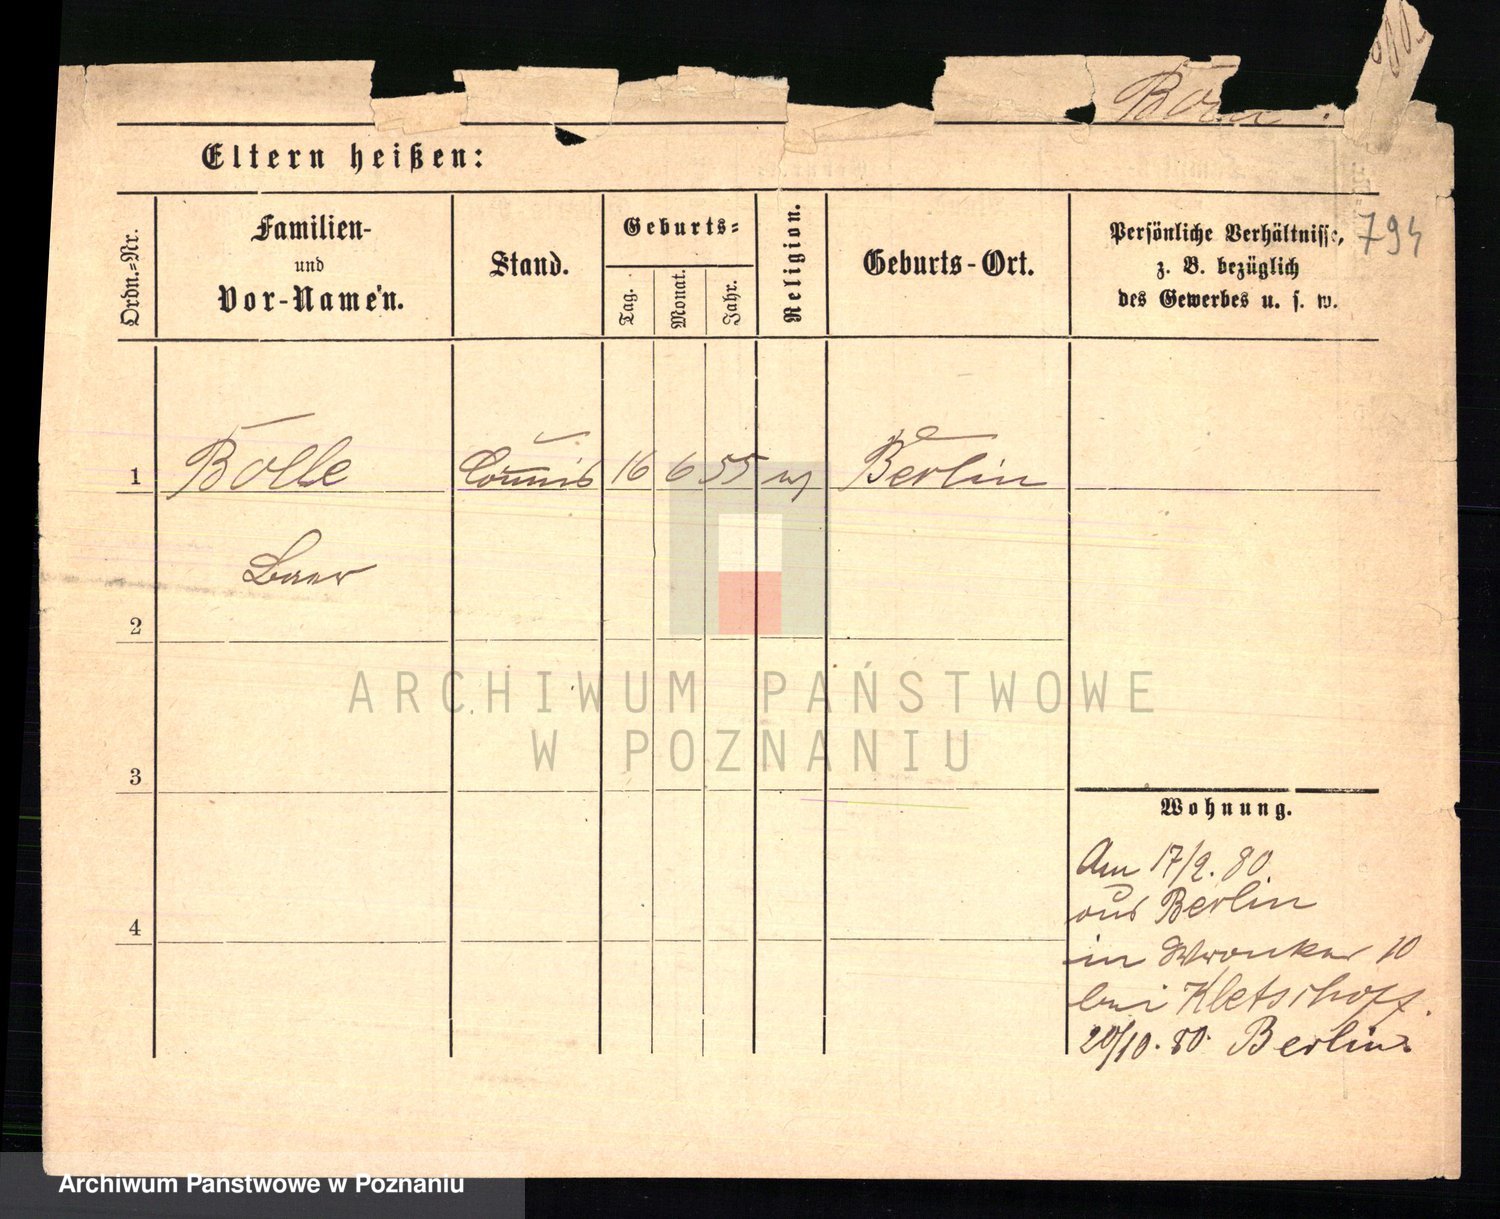 794
Eltern heißen:
Ordn.=Nr.
Familien-
und
Vor-Namen.
Stand.
Geburts=
Tag.
Monat.
Jahr.
Religion.
Geburts-Ort.
Persönliche Verhältnisse,
z. B. bezüglich
des Gewerbes u. s. w.
1 Bolle Commis 16 6 55 Berlin
Baer
2
3
4
Wohnung.
Am 17/2. 80.
aus Berlin
in Wronker 10
bei Kletschoff.
20/10. 80. Berlin
ARCHIWUM PAŃSTWOWE
W POZNANIU
Archiwum Państwowe w Poznaniu